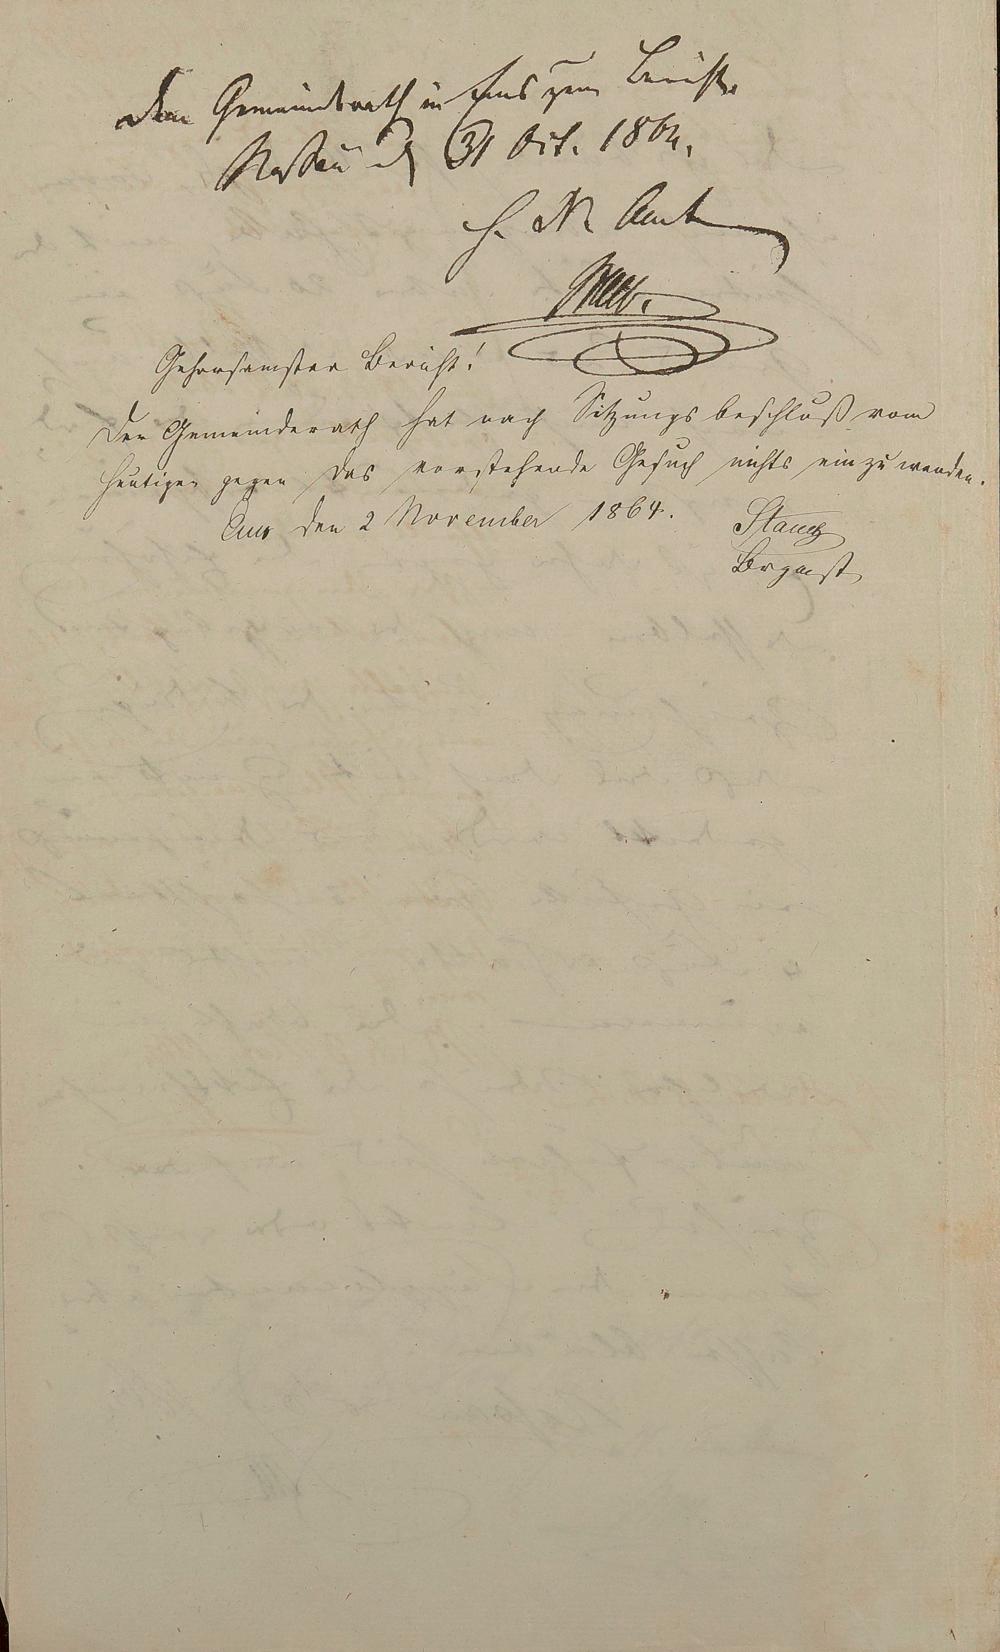 Dem Gemeindrath in Ems zum Bericht.
Nassau d 31 Oct. 1864.
H. N. Amt
Gehorsamster Bericht!
Der Gemeinderath hat nach Sitzungsbeschluß vom
Heutigen gegen das vorstehende Gesuch nichts einzuwenden.
Ems den 2 November 1864.
Brgmst